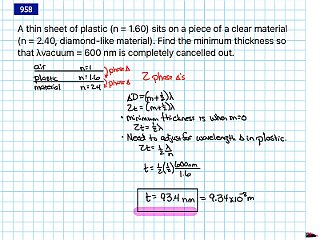 958
A thin sheet of plastic (n = 1.60) sits on a piece of a clear material
(n = 2.40, diamond-like material). Find the minimum thickness so
that λvacuum = 600 nm is completely cancelled out.
air n=1
plastic n=1.6
material n=2.4
phase Δ
phase Δ
2 phase Δ's
ΔD=(m+½)λ
2t=(m+½)λ
• minimum thickness is when m=0
2t=½λ
• Need to adjust for wavelength Δ in plastic.
2t=½ λ/n
t=½(½)(600nm/1.6)
t=93.4 nm = 9.34x10⁻⁸m